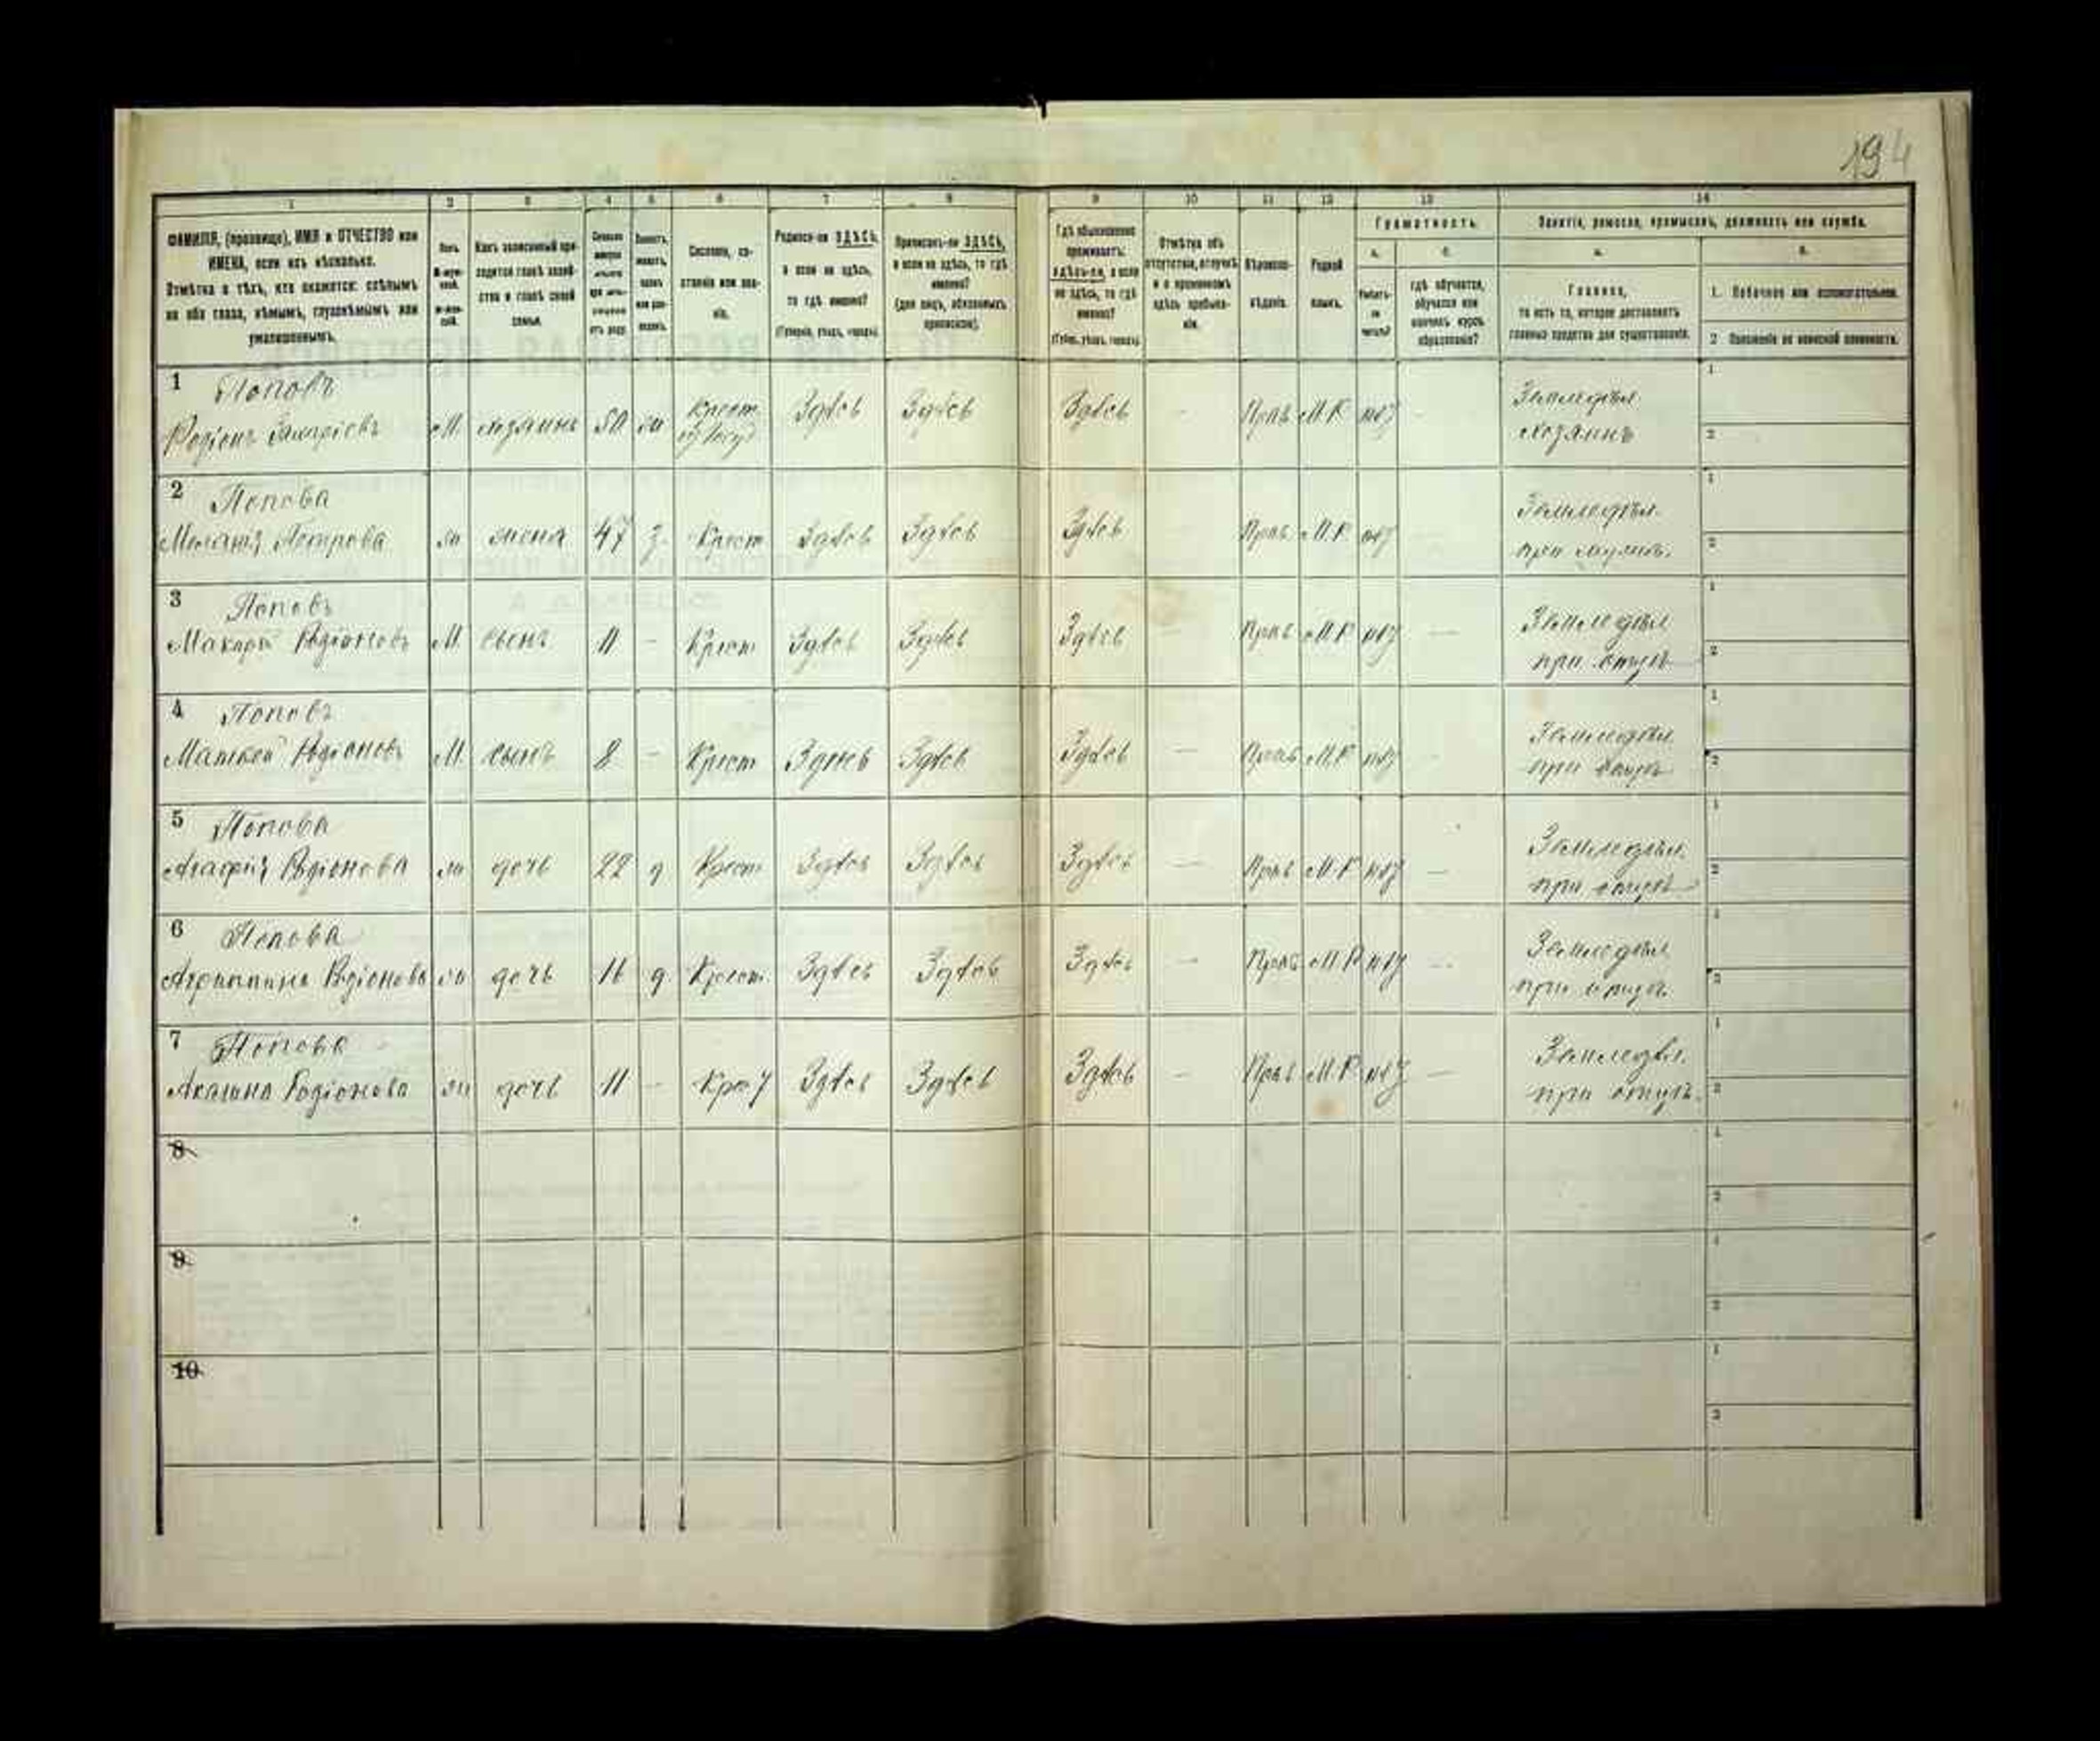 194
1 2 3 4 5 6 7 8 9 10 11 12 13 14
ФАМИЛІЯ, (прозвище), ИМЯ и ОТЧЕСТВО или
ИМЕНА, если ихъ нѣсколько.
Отмѣтка о тѣхъ, кто окажется: слѣпымъ
на оба глаза, нѣмымъ, глухонѣмымъ или
умалишеннымъ.
Полъ.
Какъ записанный при-
ходится главѣ хозяй-
ства и главѣ своей
семьи.
Сословіе, со-
стояніе или зва-
ніе.
Родился-ли ЗДѢСЬ,
а если не здѣсь,
то гдѣ именно?
(Губернія, уѣздъ, городъ).
Приписанъ-ли ЗДѢСЬ,
а если не здѣсь, то гдѣ
именно?
(для лицъ, обязанныхъ
припискою).
Гдѣ обыкновенно
проживаетъ:
здѣсь-ли, а если
не здѣсь, то гдѣ
именно?
(Губер., уѣздъ, городъ).
Отмѣтка объ
отсутствіи, отлучкѣ
и о временномъ
здѣсь пребыва-
ніи.
Вѣроиспо-
вѣданіе.
Родной
языкъ.
Грамотность.
а.
Умѣетъ-
ли
читать?
б.
гдѣ обучается,
обучался или
кончилъ курсъ
образованія?
Занятія, ремесло, промыселъ, должность или служба.
а.
Главное,
то есть то, которое доставляетъ
главныя средства для существованія.
б.
1. Побочное или вспомогательное.
2 Положеніе по воинской повинности.
1 Поповъ
Родіонъ
М хозяинъ 50 Крест Здѣсь Здѣсь Здѣсь - Прав М.Р
Земледѣл
хозяинъ
1
2
2 Попова
Петрова жена 47 з. Крест Здѣсь Здѣсь Здѣсь Прав М.Р
Земледѣл.
при
1
2
3 Поповъ
Макаръ Родіоновъ М сынъ 11 - Крест Здѣсь Здѣсь Здѣсь — Прав М.Р —
Земледѣл
при отцѣ
1
2
4 Поповъ
Матвей Родіоновъ М сынъ 8 - Крест Здѣсь Здѣсь Здѣсь — Прав М.Р -
Земледѣл
при отцѣ
1
2
5 Попова
Родіонова дочь 22 д Крест Здѣсь Здѣсь Здѣсь — Прав М.Р —
Земледѣл.
при отцѣ
1
2
6 Попова
Агрипина Родіонова дочь 16 д. Крест Здѣсь Здѣсь Здѣсь — Прав М.Р —
Земледѣл
при отцѣ
1
2
7 Попова
Акулина Родіонова дочь 11 - Здѣсь Здѣсь Здѣсь — Прав М.Р —
Земледѣл.
при отцѣ.
1
2
8
1
2
9
1
2
10
1
2